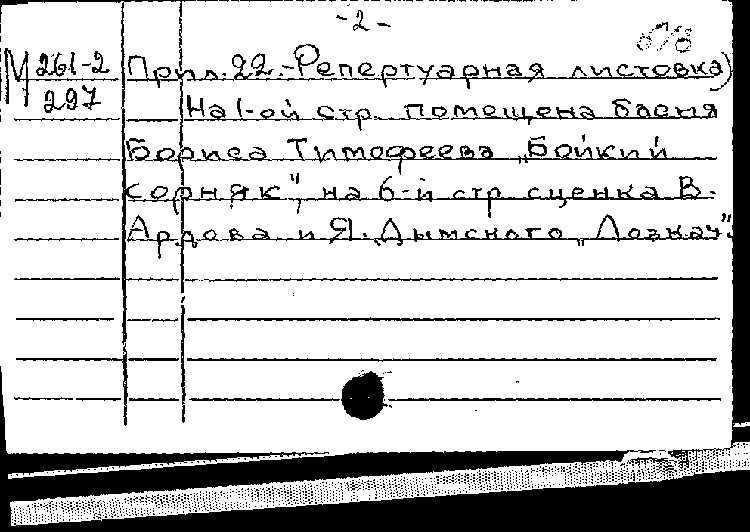 -2-
М 261-2
297
Прил. 22.-Репертуарная листовка)
На 1-ой стр. помещена басня
Бориса Тимофеева „Бойкий
сорняк", на 6-й стр сценка В.
Ардова и Я. Дымского „Лозкач".